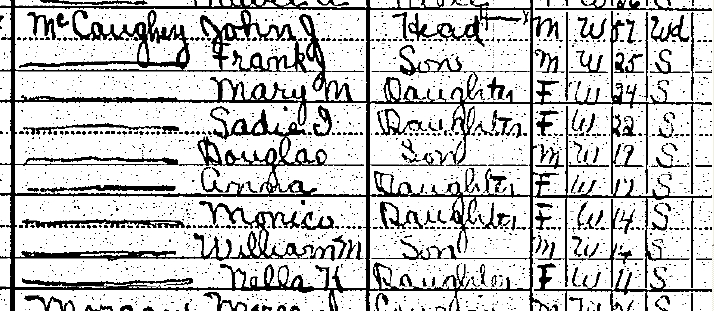 McCaughey John J Head M W 57 Wd
Frank J Son M W 25 S
Mary M Daughter F W 24 S
Sadie I Daughter F W 22 S
Douglas Son M W 19 S
Anna Daughter F W 17 S
Monica Daughter F W 14 S
William M Son M W 14 S
Nella K Daughter F W 11 S